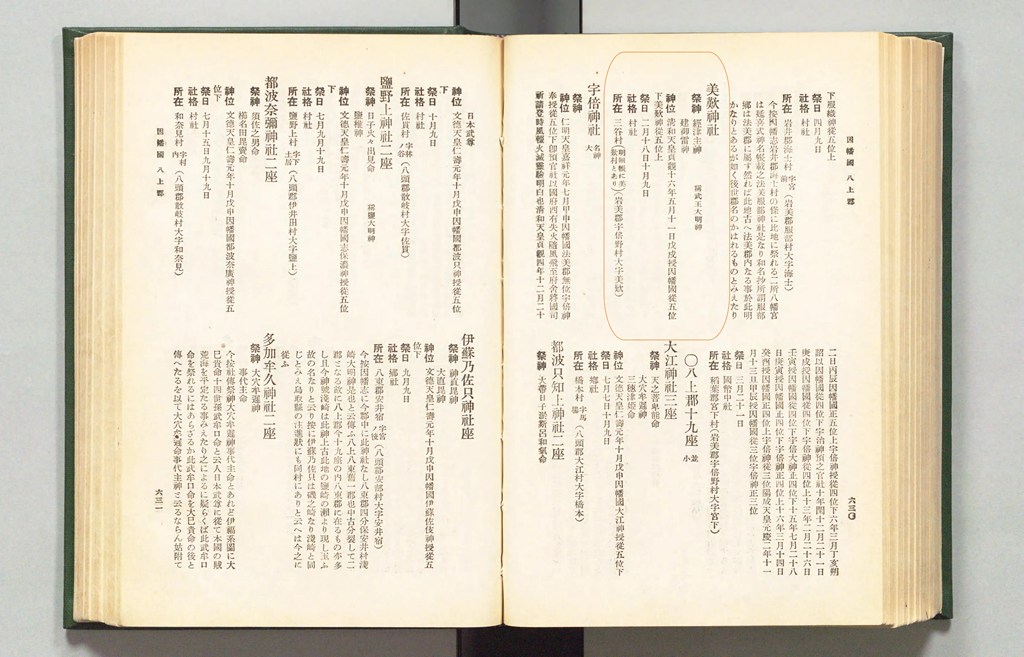 因幡國 八上郡
下服織神從五位上
祭日 四月九日
社格 村社
所在 岩井郡海士村 字宮前(岩美郡服部村大字海士)
今按因幡志岩井郡海士村の條に比地に祭れる二所八幡宮
は延喜式神名帳載之法美服部神社是なり和名抄所謂服部
鄕は法美郡に屬す然れば此地古へ法美郡内なる事於此明
かなりとあるが如く後世郡名のかはれるものとみえたり
美歎神社
祭神 經津主神 稱武王大明神
建御雷神
神位 淸和天皇貞觀十六年五月十一日戊戌授因幡國從五位
下美歎神從五位上
祭日 二月十八日十月九日
社格 村社
所在 三谷村(明細帳に美歎村とあり)(岩美郡宇倍野村大字美歎)
宇倍神社 名神大
祭神
神位 仁明天皇嘉祥元年七月甲申因幡國法美郡無位宇倍神
奉授從五位下卽預官社以國府西有失火隨風飛至府舍將國司
祈請登時風輟火滅靈驗明白也淸和天皇貞觀四年十二月二十
二日丙辰因幡國正五位上宇倍神授從四位下六年三月丁亥朔
詔以因幡國從四位下宇治神預之官社十年閏十二月二十一日
庚戌授因幡國從四位下宇倍神從四位上十三年二月二十六日
壬寅授因幡國從四位下宇倍大神正四位下十五年七月二十八
日庚寅授因幡國正四位下宇倍神正四位上十六年三月十四日
癸酉授因幡國正四位上宇倍神從三位陽成天皇元慶二年十一
月十三日甲辰授因幡國從三位宇倍神正三位
祭日 三月二十一日
社格 國幣中社
所在 稻葉郡宮下村(岩美郡宇倍野村大字宮下)
〇八上郡十九座 並小
大江神社三座
祭神 天之普卑能命
大穴牟遲神
三穗津姬命
神位 文德天皇仁壽元年十月戊申因幡國大江神授從五位下
祭日 七月七日十月九日
社格 鄕社
所在 橋本村 字馬場(八頭郡大江村大字橋本)
都波只知上神社二座
祭神 大帶日子淤斯呂和氣命
六三〇
日本武尊
神位 文德天皇仁壽元年十月戊申因幡國都波只神授從五位
下
祭日 十月九日
社格 村社
所在 佐貫村 字林ノ谷(八頭郡散岐村大字佐貫)
鹽野上神社二座
祭神 日子火々出見命 稱鹽大明神
鹽椎神
神位 文德天皇仁壽元年十月戊申因幡國志保濃神授從五位
下
祭日 七月九日十月九日
社格 村社
所在 鹽野上村 字下土居(八頭郡伊井田村大字鹽上)
都波奈彌神社二座
祭神 須佐之男命
櫛名田毘賣命
神位 文德天皇仁壽元年十月戊申因幡國都波奈彌神授從五
位下
祭日 七月十五日九月十九日
社格 村社
所在 和奈見村 字村内(八頭郡散岐村大字和奈見)
因幡國 八上郡
伊蘇乃佐只神社座
祭神 神直毘神
大直毘神
神位 文德天皇仁壽元年十月戊申因幡國伊蘇佐伎神授從五
位下
祭日 九月九日
社格 鄕社
所在 八東郡安井宿 字宮ノ後(八頭郡安部村大字安井宿)
今按因幡志に今郡中に此神社なし八東郡四分保安井村淺
崎大明神是也と云傳ふ八上八東舊一郡也中古分裂して二
郡となる故に八上郡今十九座の內八東郡に在るもの亦多
し且今神號淺崎は此神上古此地の鹽崎の瀨より現し玉ふ
故の名なりと云り按に伊蘇乃佐只は磯之崎なり淺崎と同
じとみえ鳥取縣の注進狀にも同村にありと云へは今之に
從ふ
多加牟久神社二座
祭神 大穴牟遲神
事代主命
今按社傳祭神大穴牟遲神事代主命とあれど伊福系圖に大
巳貴命十四世孫武牟口命と云人日本武尊に從て本國の賊
荒海を平定たる事みえたり之によるに疑らくば此武牟口
命を祭れるにはあらざるか此武牟口命を大巳貴命の後と
傳へたるを以て大穴牟遲命事代主神と云るならん姑附て
六三一